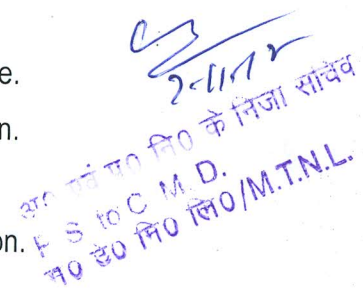 e.
n.
on.
अ० एवं प्र० नि० के निजी सचिव
P S to C M. D.
म० टे० नि० लि०/M.T.N.L.